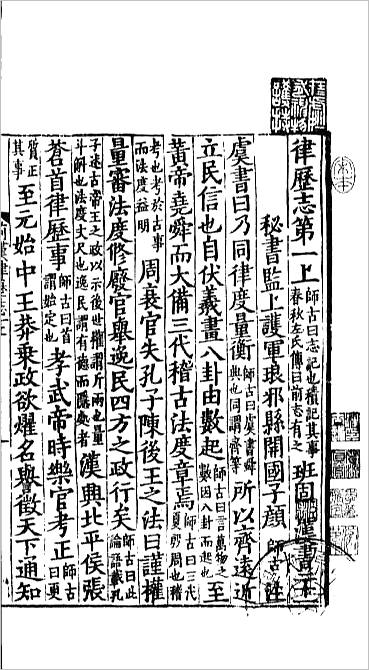 律曆志第一上 師古曰志記也積記其事春秋左氏傳曰前志有之 班固 漢書二十一
秘書監上護軍琅邪縣開國子顏 師古 注
虞書曰乃同律度量衡 師古曰虞書舜典也同謂齊等 所以齊遠近
立民信也自伏羲畫八卦由數起 師古曰言萬物之數因八卦而起也 至
黃帝堯舜而大備三代稽古法度章焉 師古曰三代夏殷周也稽
考也考於古事而法度益明 周衰官失孔子陳後王之法曰謹權
量審法度修廢官舉逸民四方之政行矣 師古曰此論語載孔
子述古帝王之政以示後世權謂斤兩也量斗斛也法度丈尺也逸民謂有德而隱處者 漢興北平侯張
蒼首律曆事 師古曰首謂始定也 孝武帝時樂官考正 師古曰更
質正其事 至元始中王莽秉政欲燿名譽徵天下通知
前漢律曆志上